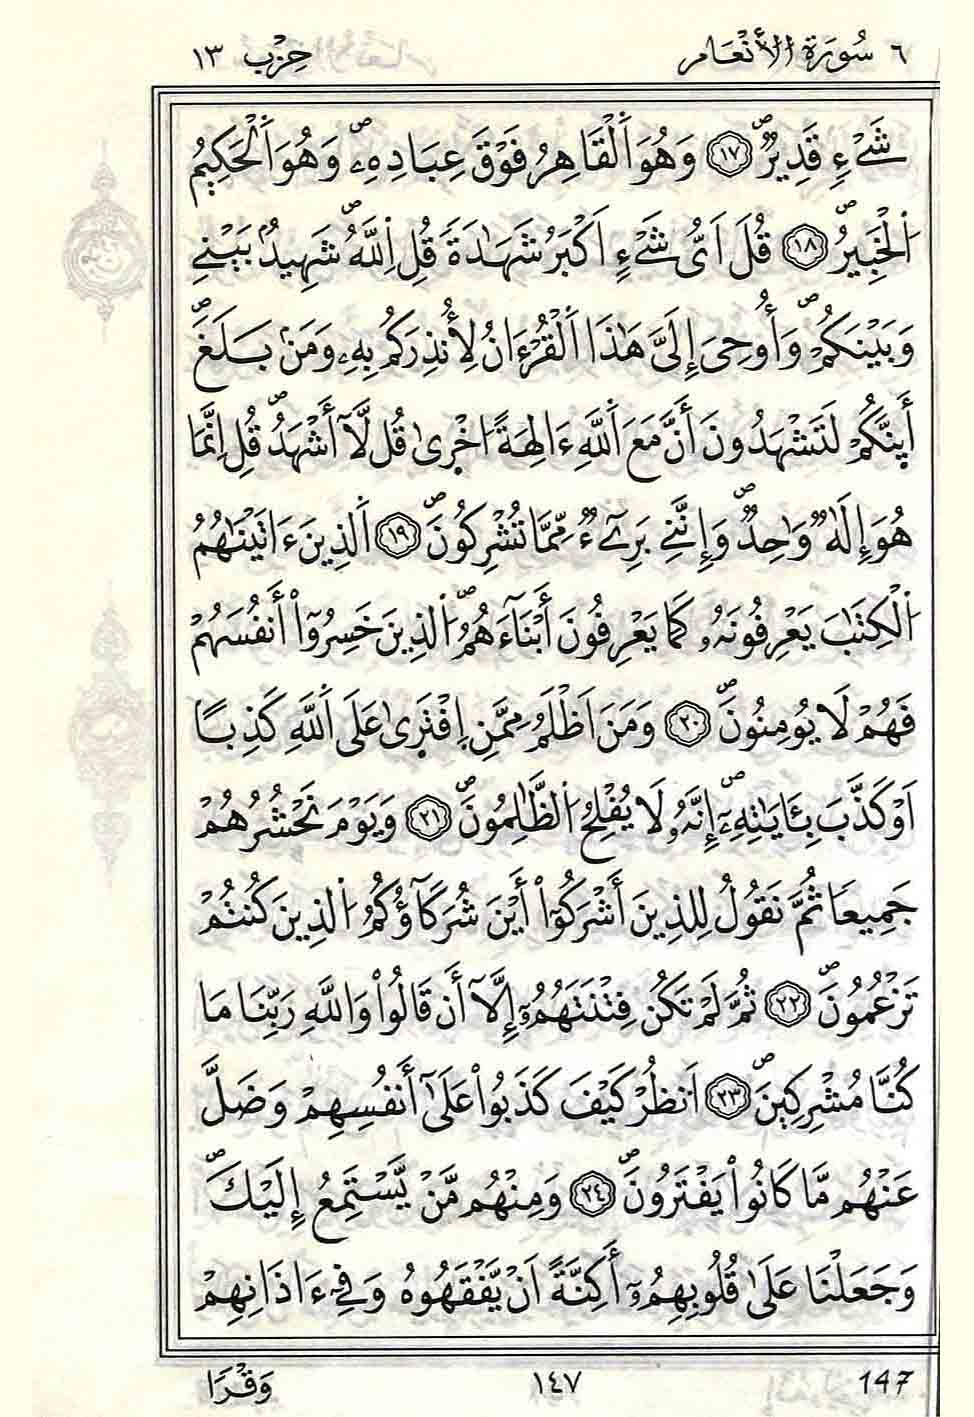 ٦ سُورَةُ الأَنْعَامِ حِزْب ١٣
شَےْءٖ قَدِيرٞۖ ١٧ وَهُوَ اَ۬لْقَاهِرُ فَوْقَ عِبَادِهِۦۖ وَهُوَ اَ۬لْحَكِيمُ
اُ۬لْخَبِيرُۖ ١٨ قُلَ اَيُّ شَےْءٍ اَكْبَرُ شَهَٰدَةٗ قُلِ اِ۬للَّهُۖ شَهِيدُۢ بَيْنِے
وَبَيْنَكُمْۖ وَأُوحِيَ إِلَيَّ هَٰذَا اَ۬لْقُرْءَانُ لِأُنذِرَكُم بِهِۦ وَمَنۢ بَلَغَۖ
أَئِنَّكُمْ لَتَشْهَدُونَ أَنَّ مَعَ اَ۬للَّهِ ءَالِهَةً اُخْر۪ىٰ قُل لَّآ أَشْهَدُۖ قُلِ اِنَّمَا
هُوَ إِلَٰهٞ وَٰحِدٞۖ وَإِنَّنِے بَرِےٓءٞ مِّمَّا تُشْرِكُونَۖ ١٩ اَ۬لذِينَ ءَاتَيْنَٰهُمُ
اُ۬لْكِتَٰبَ يَعْرِفُونَهُۥ كَمَا يَعْرِفُونَ أَبْنَآءَهُمُۖ اُ۬لذِينَ خَسِرُوٓاْ أَنفُسَهُمْ
فَهُمْ لَا يُومِنُونَۖ ٢٠ وَمَنَ اَظْلَمُ مِمَّنِ اِ۪فْتَر۪ىٰ عَلَى اَ۬للَّهِ كَذِباً
اَوْ كَذَّبَ بِـَٔايَٰتِهِۦٓۖ إِنَّهُۥ لَا يُفْلِحُ اُ۬لظَّٰلِمُونَۖ ٢١ وَيَوْمَ نَحْشُرُهُمْ
جَمِيعاٗ ثُمَّ نَقُولُ لِلذِينَ أَشْرَكُوٓاْ أَيْنَ شُرَكَآؤُكُمُ اُ۬لذِينَ كُنتُمْ
تَزْعُمُونَۖ ٢٢ ثُمَّ لَمْ تَكُن فِتْنَتَهُمُۥٓ إِلَّآ أَن قَالُواْ وَاللَّهِ رَبِّنَا مَا
كُنَّا مُشْرِكِينَۖ ٢٣ اَ۟نظُرْ كَيْفَ كَذَبُواْ عَلَىٰٓ أَنفُسِهِمْ وَضَلَّ
عَنْهُم مَّا كَانُواْ يَفْتَرُونَۖ ٢٤ وَمِنْهُم مَّنْ يَّسْتَمِعُ إِلَيْكَۖ
وَجَعَلْنَا عَلَىٰ قُلُوبِهِمُۥٓ أَكِنَّةً اَنْ يَّفْقَهُوهُ وَفِےٓ ءَاذَانِهِمْ
147 ١٤٧ وَقْراٗ